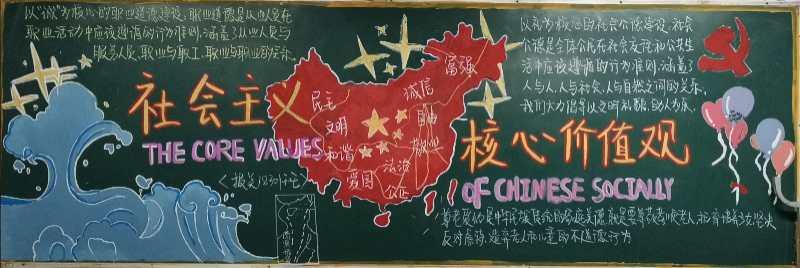 以“诚”为核心的职业道德建设，职业道德是从业人员在
职业活动中应该遵循的行为准则，涵盖了从业人员与
服务人员，职业与职工，职业与职业的关系
以礼为核心的社会公德建设，社会
公德是全体公民在社会交往和公共生
活中应该遵循的行为准则，涵盖了
人与人，人与社会，人与自然之间的关系，
我们大力倡导以文明礼貌，助人为乐，
社会主义
核心价值观
THE CORE VALUES
OF CHINESE SOCIALLY
富强
民主
文明
和谐
爱国
诚信
自由
敬业
法治
公正
尊老爱幼是中华民族传统的家庭美德
反对虐待、遗弃老人和儿童的不道德行为